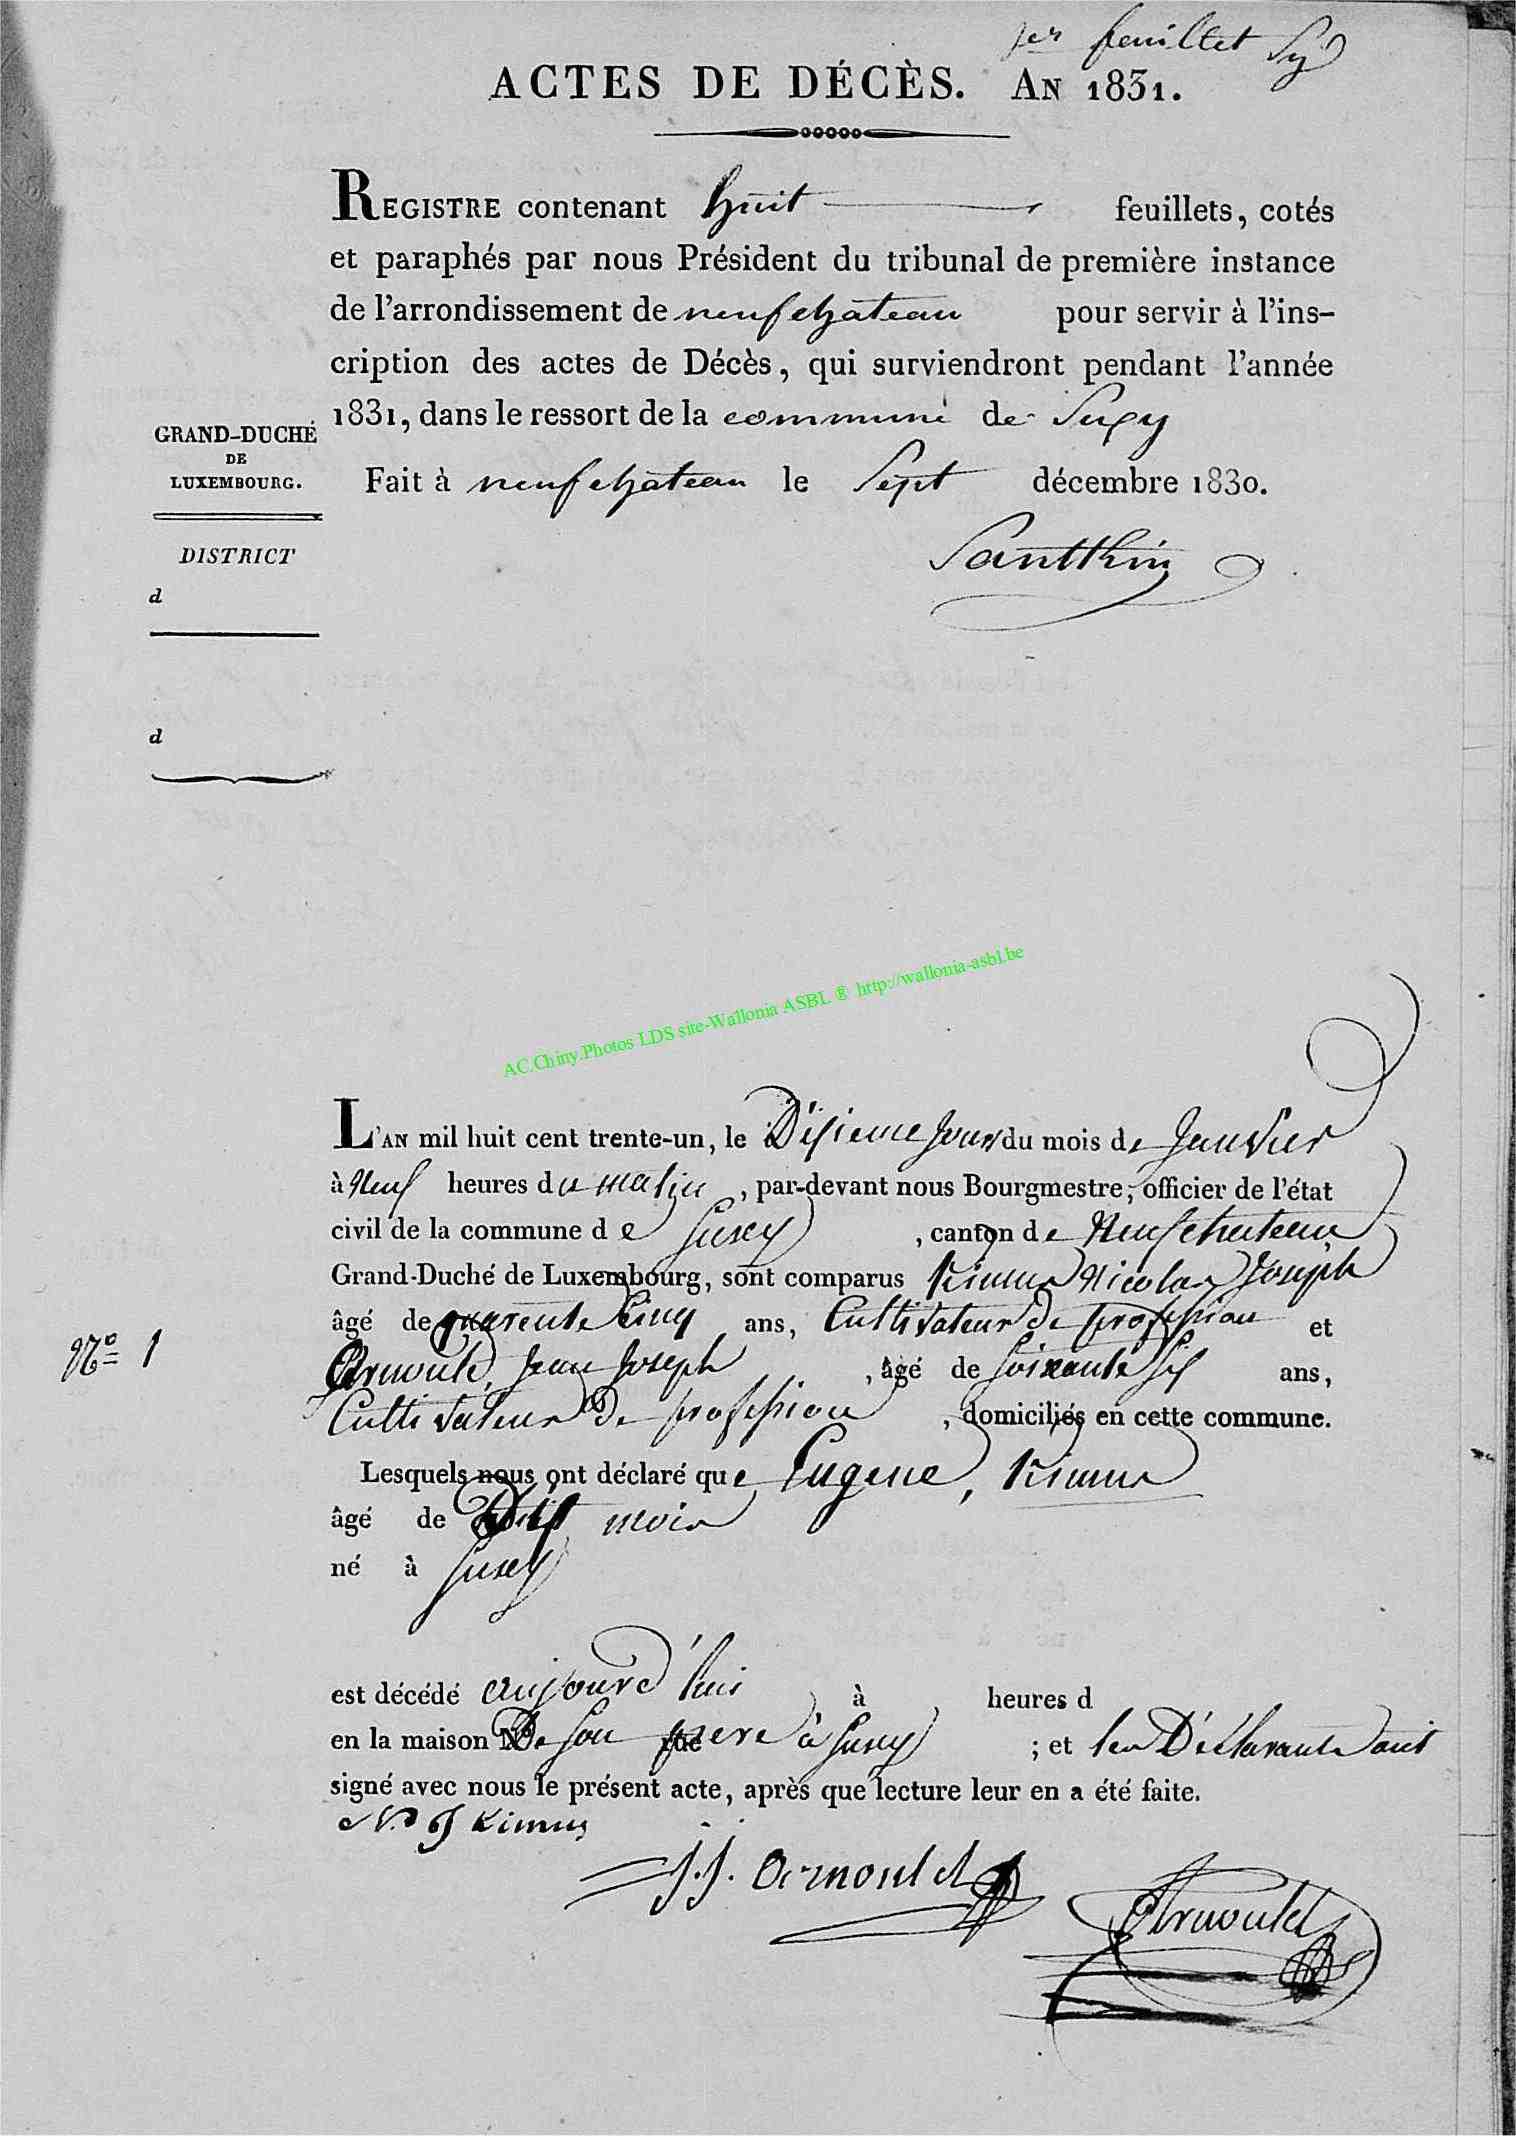 1er feuillet Sy
ACTES DE DÉCÈS. AN 1831.
REGISTRE contenant huit feuillets, cotés
et paraphés par nous Président du tribunal de première instance
de l'arrondissement de neufchâteau pour servir à l'ins-
cription des actes de Décès, qui surviendront pendant l'année
1831, dans le ressort de la commune de Suxy
GRAND-DUCHÉ
DE
LUXEMBOURG.
Fait à neufchâteau le Sept décembre 1830.
DISTRICT
Santkin
d
d
AC.Chiny.Photos LDS site-Wallonia ASBL ® http://wallonia-asbl.be
L'AN mil huit cent trente-un, le Dixieme jour du mois de Janvier
à Neuf heures du matin, par-devant nous Bourgmestre, officier de l'état
civil de la commune de Suxy, canton de Neufchateau
Grand-Duché de Luxembourg, sont comparus Kimus Nicolas Joseph
âgé de quarente Cinq ans, Cultivateur De profession et
N° 1
Arnould, Jean Joseph, âgé de soixante six ans,
Cultivateur De profession, domiciliés en cette commune.
Lesquels nous ont déclaré que Eugene, Kimus
âgé de mois
né à Suxy
est décédé aujourd'hui à heures d
en la maison N° De son pere à Suxy ; et les Déclarants ont
signé avec nous le présent acte, après que lecture leur en a été faite.
N. J Kimus
J. J. Arnould
Arnould